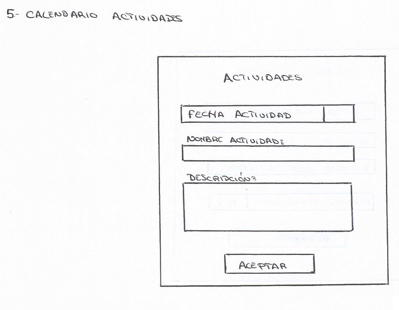 5- CALENDARIO ACTIVIDADES
ACTIVIDADES
FECHA ACTIVIDAD
NOMBRE ACTIVIDAD:
DESCRIPCIÓN:
ACEPTAR